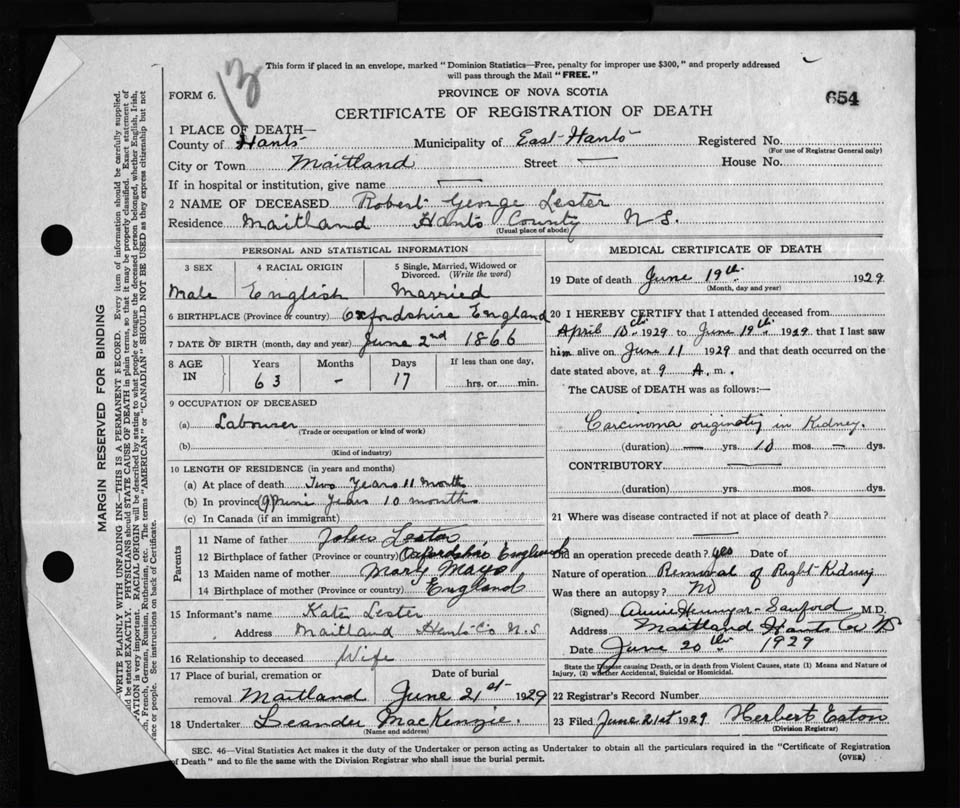 13
This form if placed in an envelope, marked "Dominion Statistics—Free, penalty for improper use $300," and properly addressed
will pass through the Mail "FREE."
FORM 6.
PROVINCE OF NOVA SCOTIA
654
CERTIFICATE OF REGISTRATION OF DEATH
1 PLACE OF DEATH—
County of Hants Municipality of East Hants Registered No.
(For use of Registrar General only)
City or Town Maitland Street — House No.
If in hospital or institution, give name —
2 NAME OF DECEASED Robert George Lester
Residence Maitland Hants County N S.
(Usual place of abode)
PERSONAL AND STATISTICAL INFORMATION
3 SEX 4 RACIAL ORIGIN 5 Single, Married, Widowed or
Divorced. (Write the word)
Male English Married
6 BIRTHPLACE (Province or country) Oxfordshire England
7 DATE OF BIRTH (month, day and year) June 2nd 1866
8 AGE
IN
Years Months Days If less than one day,
63 - 17 hrs. or min.
9 OCCUPATION OF DECEASED
(a) Labourer
(Trade or occupation or kind of work)
(b)
(Kind of industry)
10 LENGTH OF RESIDENCE (in years and months)
(a) At place of death Two Years 11 Months
(b) In province Years 10 months
(c) In Canada (if an immigrant)
Parents
11 Name of father John Lester
12 Birthplace of father (Province or country) Oxfordshire England
13 Maiden name of mother Mary Mays
14 Birthplace of mother (Province or country) England
15 Informant's name Kate Lester
Address Maitland Hants Co N.S
16 Relationship to deceased Wife
17 Place of burial, cremation or Date of burial
removal Maitland June 21st 1929
18 Undertaker Leander MacKenzie.
(Name and address)
MEDICAL CERTIFICATE OF DEATH
19 Date of death June 19th 1929
(Month, day and year)
20 I HEREBY CERTIFY that I attended deceased from
April 10th 1929 to June 19th 1929 that I last saw
him alive on June 11 1929 and that death occurred on the
date stated above, at 9 A. m.
The CAUSE of DEATH was as follows:—
Carcinoma originating in Kidney.
(duration) — yrs. 10 mos. — dys.
CONTRIBUTORY —
(duration) yrs. mos. dys.
21 Where was disease contracted if not at place of death?
—
Did an operation precede death? yes Date of
Nature of operation Removal of Right Kidney
Was there an autopsy? No
(Signed) Sanford M.D.
Address Maitland Hants Co NS
Date June 20th 1929
State the Disease causing Death, or in death from Violent Causes, state (1) Means and Nature of
Injury, (2) whether Accidental, Suicidal or Homicidal.
22 Registrar's Record Number
23 Filed June 21st 1929 Herbert Eaton
(Division Registrar)
SEC. 46—Vital Statistics Act makes it the duty of the Undertaker or person acting as Undertaker to obtain all the particulars required in the "Certificate of Registration
of Death" and to file the same with the Division Registrar who shall issue the burial permit.
(OVER)
MARGIN RESERVED FOR BINDING
WRITE PLAINLY WITH UNFADING INK—THIS IS A PERMANENT RECORD. Every item of information should be carefully supplied.
be stated EXACTLY. PHYSICIANS should STATE CAUSE OF DEATH in plain terms, so that it may be properly classified. Exact statement of
is very important. RACIAL ORIGIN will be described by stating to what people or tongue the deceased person belonged, whether English, Irish,
French, German, Russian, Ruthenian, etc. The terms "AMERICAN" or "CANADIAN" SHOULD NOT BE USED as they express citizenship but not
race or people. See instructions on back of Certificate.